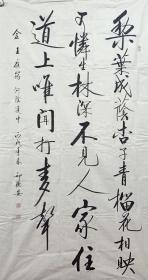 梨葉成蔭杏子青榴花相映
可憐生林深不見人家住
道上唯聞打麥聲
金王庭筠 河陰道中 丙戌年春